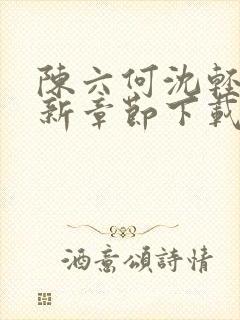 陳六何沈輕
新章節下載
酒意頌詩情